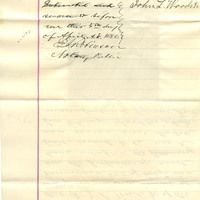 Subscribed and John L. Woods
sworn to before
me this 6th day
of April A.D. 188
Notary Public